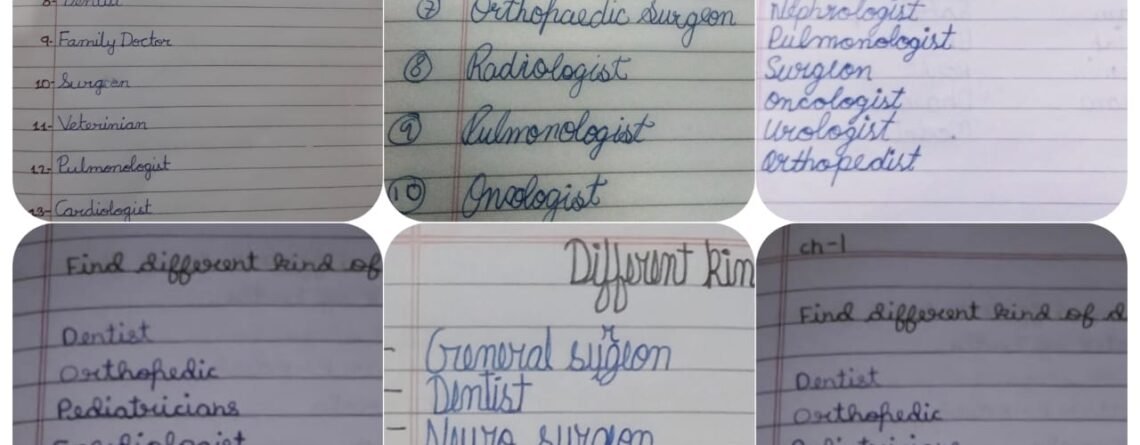 8- Dentist
9- Family Doctor
10- Surgeon
11- Veterinian
12- Pulmonologist
13- Cardiologist
7 Orthopaedic Surgeon
8 Radiologist
9 Pulmonologist
10 Oncologist
Nephrologist
Pulmonologist
Surgeon
oncologist
Urologist
Orthopedist
Find different kind of
Dentist
Orthopedic
Pediatricians
Different kin
- General sugeon
r
- Dentist
- Neuro surgeon
ch-1
Find different kind of d
Dentist
Orthopedic